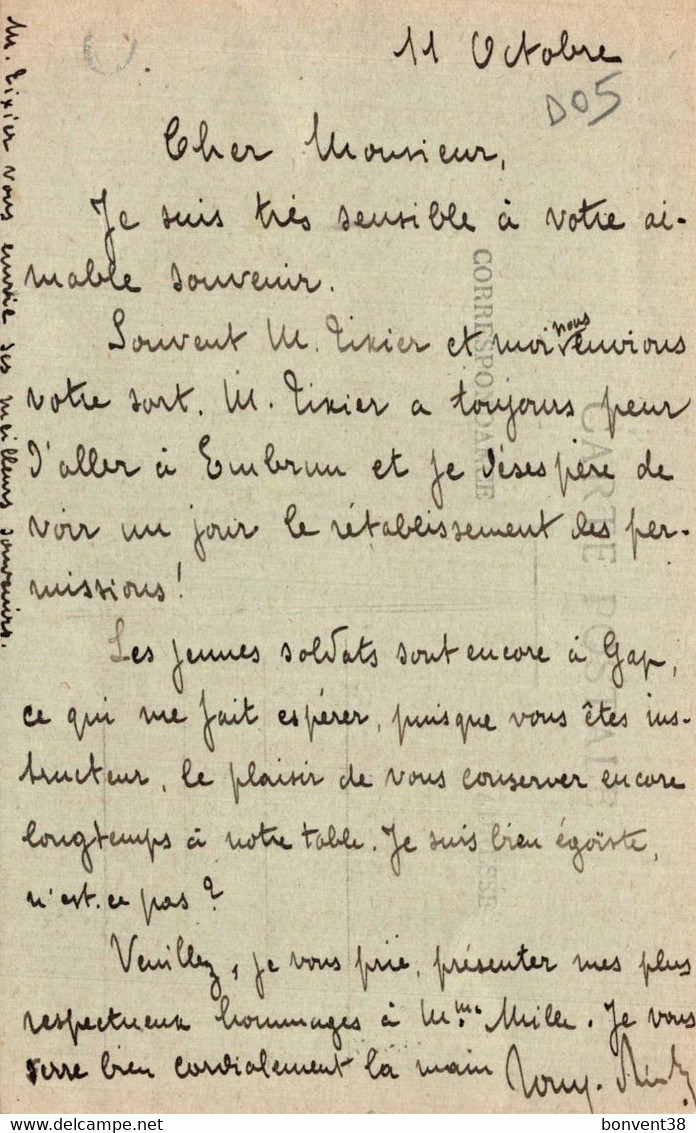 11 Octobre
D05
Cher Monsieur,
Je suis très sensible à votre ai-
mable souvenir.
Souvent M. Tixier et moi nous envions
votre sort. M. Tixier a toujours peur
d'aller à Embrun et je désespère de
voir un jour le rétablissement des per-
missions!
Les jeunes soldats sont encore à Gap,
ce qui me fait espérer, puisque vous êtes ins-
tructeur, le plaisir de vous conserver encore
longtemps à notre table. Je suis bien égoïste,
n'est-ce pas?
Veuillez, je vous prie, présenter mes plus
respectueux hommages à Mme Mille. Je vous
serre bien cordialement la main
M. Tixier vous envoie ses meilleurs souvenirs.
CORRESPONDANCE
CARTE POSTALE
bonvent38